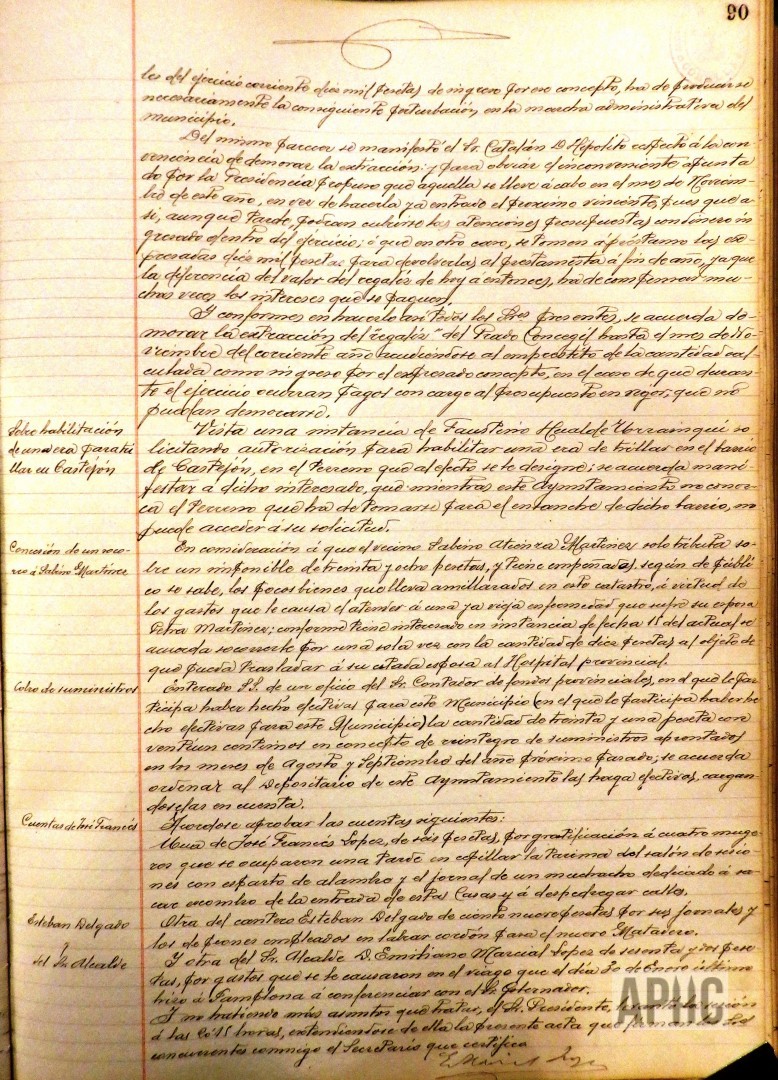 90
les del ejercicio corriente diez mil pesetas de ingreso por ese concepto, ha de producirse
necesariamente la consiguiente perturbación en la marcha administrativa del
municipio.
Del mismo parecer se manifestó el Sr. Catalán D. Hipólito respecto á la con-
veniencia de demorar la extracción; y para obviar el inconveniente apunta-
do por la Presidencia propuso que aquella se lleve á cabo en el mes de Noviem-
bre de este año, en vez de hacerla ya entrado el próximo viniente, pues que a-
sí, aunque tarde, podrán cubrirse las atenciones presupuestas con dinero in-
gresado dentro del ejercicio; ó que en otro caso, se tomen á préstamo las ex-
presadas diez mil pesetas para devolverlas al prestamista á fin de año, ya que
la diferencia del valor del regaliz de hoy á entonces, ha de compensar mu-
chas veces los intereses que se paguen.
Y conformes en hacerlo así todos los Sres presentes, se acuerda de-
morar la extracción del "regaliz" del Prado Concegil hasta el mes de No-
viembre del corriente año acudiéndose al empréstito de la cantidad cal-
culada como ingreso por el expresado concepto, en el caso de que duran-
te el ejercicio ocurran pagos con cargo al presupuesto en vigor, que no
puedan demorarse.
Sobre habilitación
de una era para tri-
llar en Castejón
Vista una instancia de Faustino Hualde Urzainqui so-
licitando autorización para habilitar una era de trillar en el barrio
de Castejón, en el terreno que al efecto se le designe; se acuerda mani-
festar á dicho interesado, que mientras este Ayuntamiento no conoz-
ca el terreno que ha de tomarse para el ensanche de dicho barrio, no
puede acceder á su solicitud.
Concesión de un soco-
rro á Sabino Martínez
En consideración á que el vecino Sabino Atienza Martínez solo tributa so-
bre un imponible de treinta y ocho pesetas, y tiene empeñadas, según de públi-
co se sabe, los pocos bienes que lleva amillarados en este catastro, á virtud de
los gastos que le causa el atender á una ya vieja enfermedad que sufre su esposa
Petra Martínez; conforme tiene interesado en instancia de fecha 15 del actual, se
acuerda socorrerle por una sola vez con la cantidad de diez pesetas al objeto de
que pueda trasladar á su citada esposa al Hospital provincial.
Cobro de suministros
Enterado S.S. de un oficio del Sr. Contador de fondos provinciales, en el que le par-
ticipa haber hecho efectivas para este Municipio (en el que le participa haber he-
cho efectivas para este Municipio) la cantidad de treinta y una peseta con
veintiun centimos en concepto de reintegro de suministros aprontados
en los meses de Agosto y Septiembre del año próximo pasado; se acuerda
ordenar al Depositario de este Ayuntamiento las haga efectivas, cargan-
doselas en cuenta.
Cuentas de José Francés
Acordose aprobar las cuentas siguientes:
Una de José Francés Lopez, de seis pesetas, por gratificación á cuatro muge-
res que se ocuparon una tarde en cepillar la tarima del salón de sesio-
nes con esparto de alambre y el jornal de un muchacho dedicado á sa-
car escombro de la entrada de estas Casas y á despedregar calles.
Esteban Delgado
Otra del cantero Esteban Delgado de ciento nueve pesetas por sus jornales y
los de peones empleados en labrar cordón para el nuevo Matadero.
del Sr. Alcalde
Y otra del Sr. Alcalde D. Emiliano Marcial Lopez de sesenta y dos pese-
tas, por gastos que se le causaron en el viage que el día 30 de Enero último
hizo á Pamplona á conferenciar con el Sr. Gobernador.
Y no habiendo más asuntos que tratar, el Sr. Presidente, levantó la sesión
á las horas, extendiendose de ella la presente acta que firman los Sres
concurrentes conmigo el Secretario que certifico
APHC